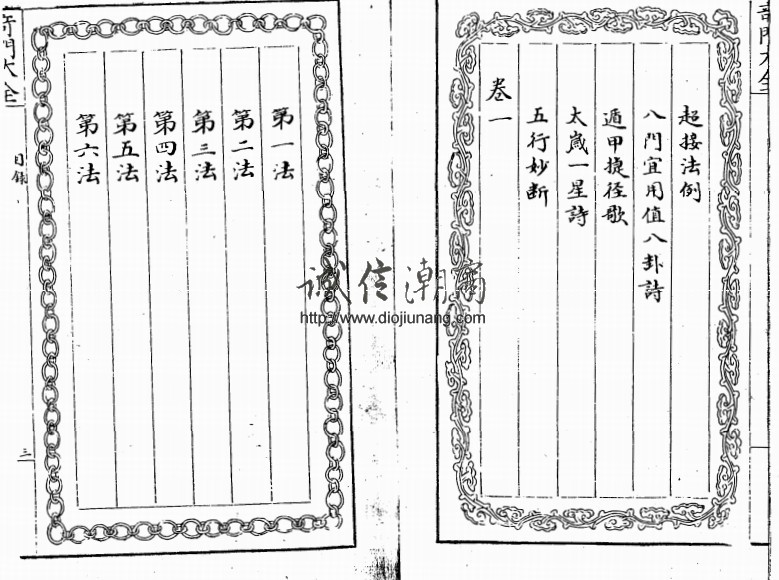 超接法例
八門宜用值八卦詩
遁甲捷径歌
太歲一星詩
五行妙断
卷一
第一法
第二法
第三法
第四法
第五法
第六法
奇門大全
目錄
三
奇門大全
诚信潮甯
http://www.diojiunang.com